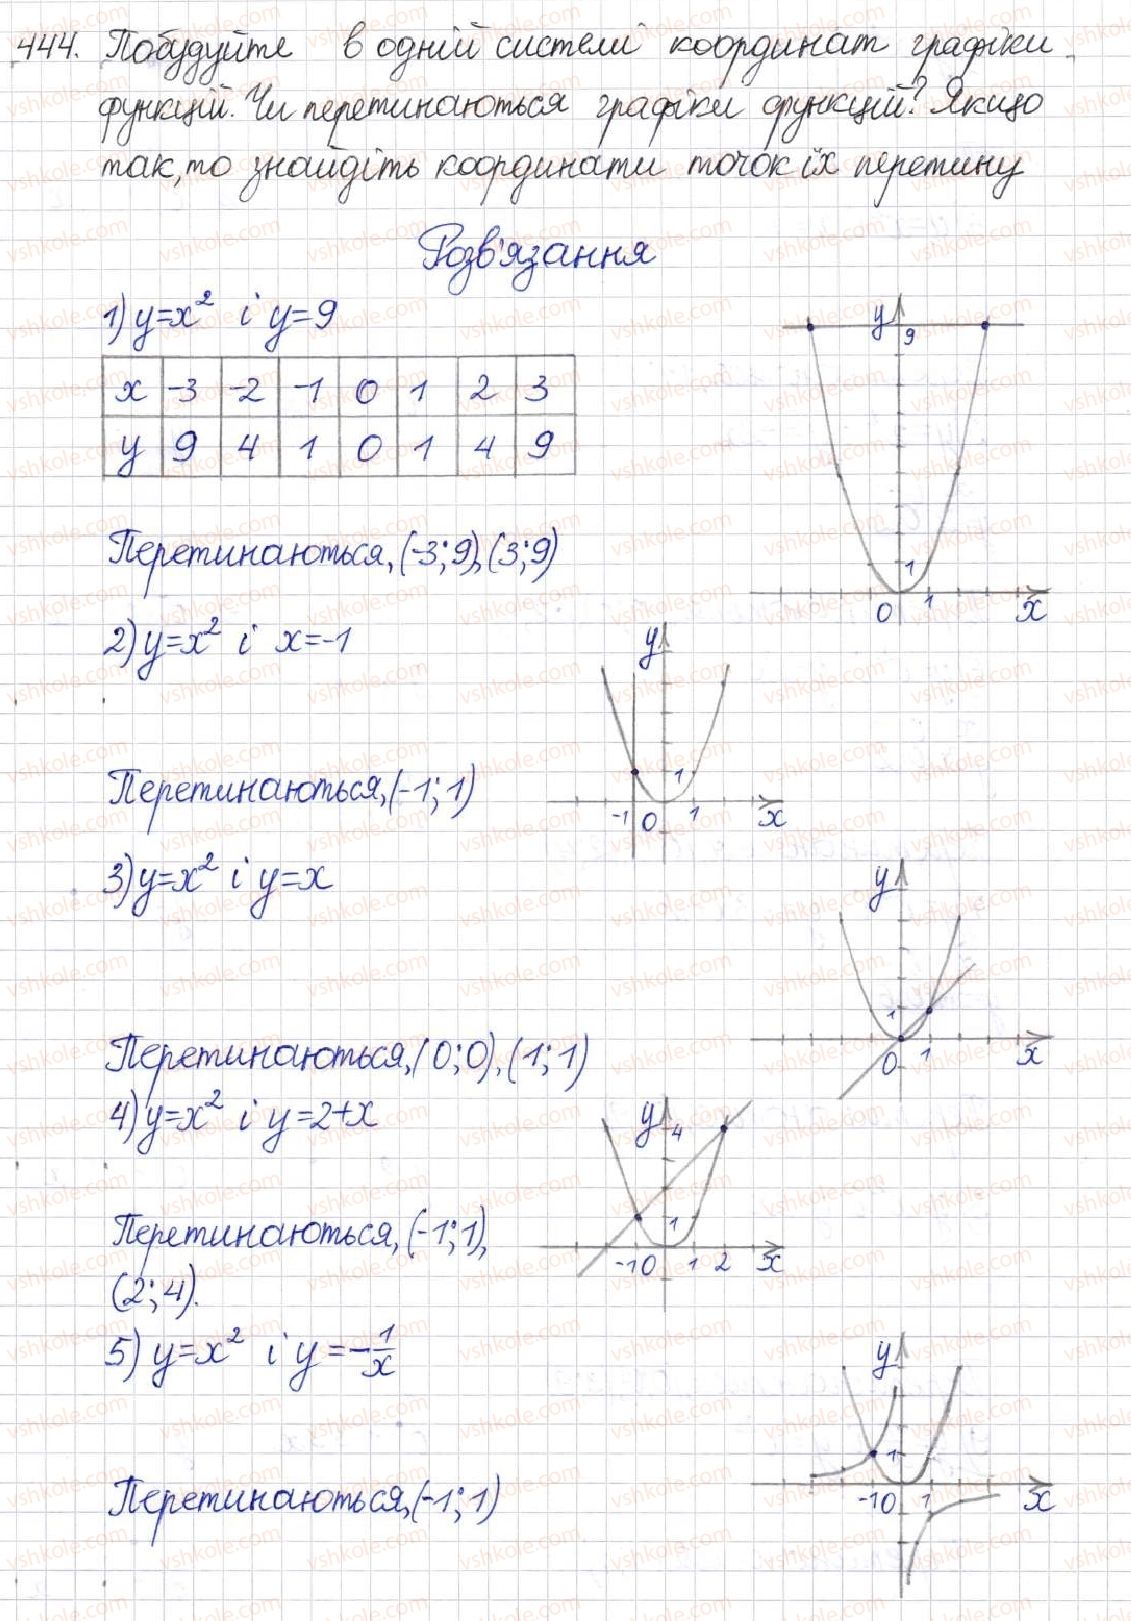 444. Побудуйте в одній системі координат графіки
функцій. Чи перетинаються графіки функцій? Якщо
так, то знайдіть координати точок їх перетину
Розв'язання
1) y=x² і y=9
x -3 -2 -1 0 1 2 3
y 9 4 1 0 1 4 9
y 9 1 0 1 x
Перетинаються, (-3; 9), (3; 9)
2) y=x² і x=-1
y 1 -1 0 1 x
Перетинаються, (-1; 1)
3) y=x² і y=x
y 1 0 1 x
Перетинаються, (0; 0), (1; 1)
4) y=x² і y=2+x
y 4 1 -1 0 1 2 x
Перетинаються, (-1; 1),
(2; 4).
5) y=x² і y=-1/x
y 1 -1 0 1 x
Перетинаються, (-1; 1)
vshkole.com